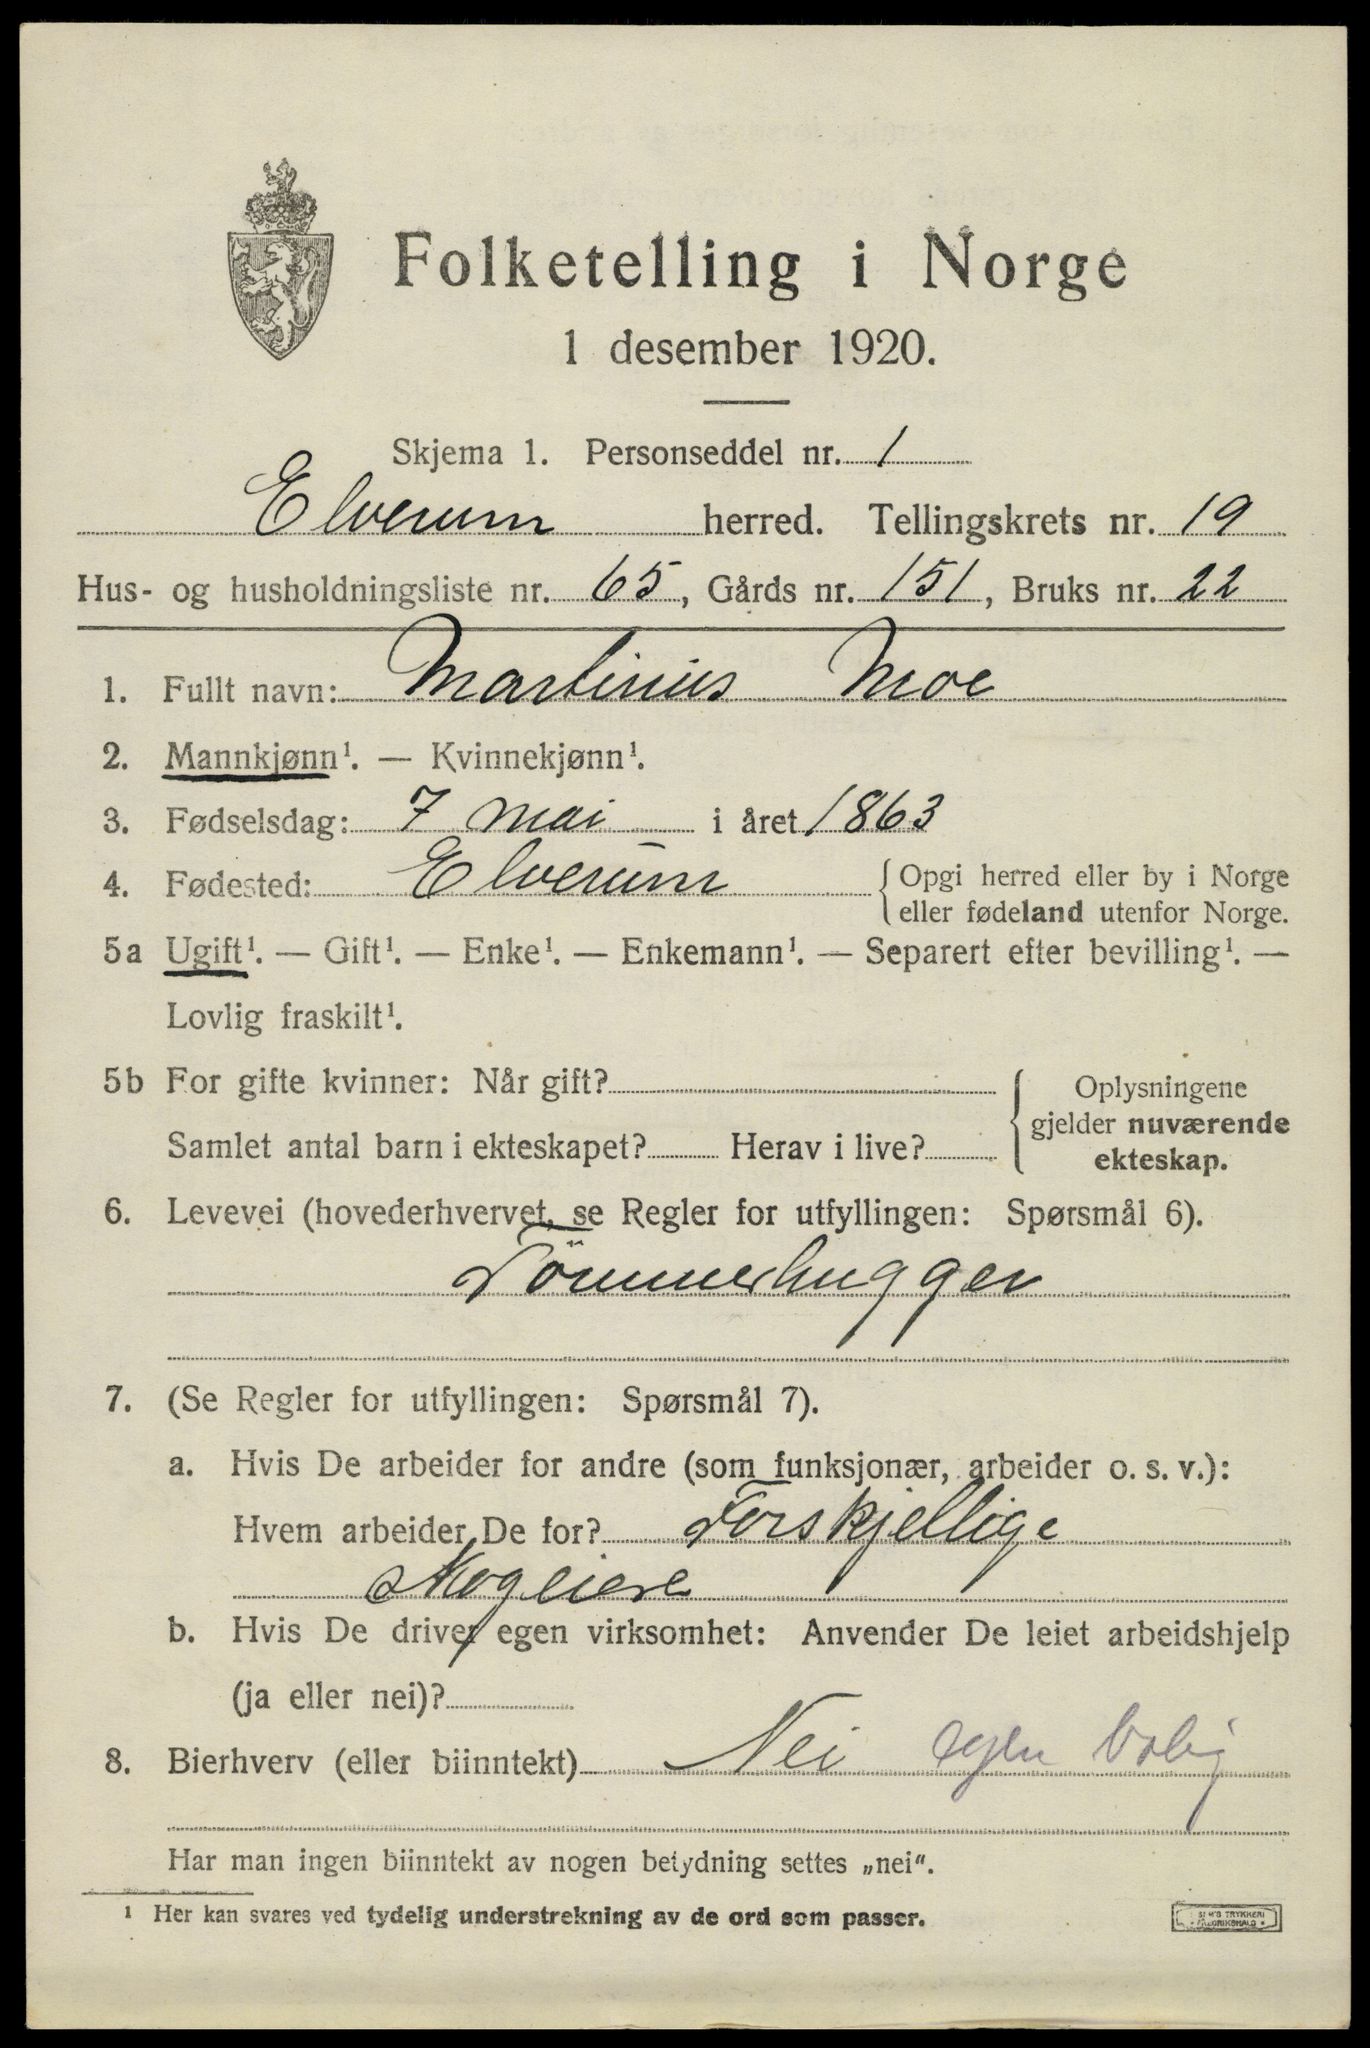 Folketelling i Norge
1 desember 1920.
Skjema 1. Personseddel nr. 1
Elverum herred. Tellingskrets nr. 19
Hus- og husholdningsliste nr. 65, Gårds nr. 151, Bruks nr. 22
1. Fullt navn: Martinius Moe
2. Mannkjønn¹. — Kvinnekjønn¹.
3. Fødselsdag: 7 mai i året 1863
4. Fødested: Elverum { Opgi herred eller by i Norge
eller fødeland utenfor Norge.
5a Ugift¹. — Gift¹. — Enke¹. — Enkemann¹. — Separert efter bevilling¹. —
Lovlig fraskilt¹.
5b For gifte kvinner: Når gift?
Samlet antal barn i ekteskapet? Herav i live?
{ Oplysningene
gjelder nuværende
ekteskap.
6. Levevei (hovederhvervet, se Regler for utfyllingen: Spørsmål 6).
Tömmerhugger
7. (Se Regler for utfyllingen: Spørsmål 7).
a. Hvis De arbeider for andre (som funksjonær, arbeider o. s. v.):
Hvem arbeider De for? Forskjellige
Skogeiere
b. Hvis De driver egen virksomhet: Anvender De leiet arbeidshjelp
(ja eller nei)?
8. Bierhverv (eller biinntekt) Nei egen bolig
Har man ingen biinntekt av nogen betydning settes „nei“.
¹ Her kan svares ved tydelig understrekning av de ord som passer.
TRYKKERI
FREDRIKSHALD